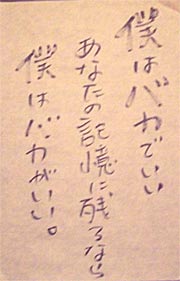 僕はバカでいい
あなたの記憶に残るなら
僕はバカがいい。